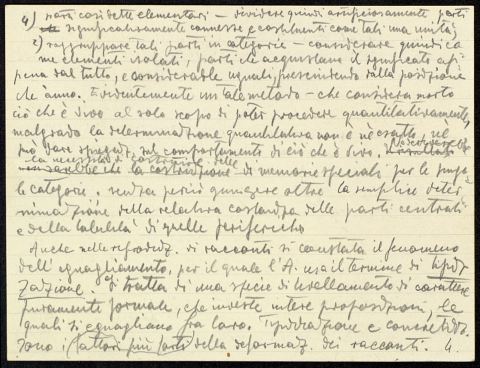 4) parti cosidette elementari – dividere quindi artificiosamente parti
significativamente connesse e costituenti come tali una unità;
2) raggruppare tali parti in categorie – considerare quindi co
me elementi isolati, parti che acquistano il significato ap
pena dal tutto, e considerarle uguali, prescindendo dalla posizione
che hanno. Evidentemente un tale metodo – che considera morto
ciò che è vivo al solo scopo di poter procedere quantitativamente,
malgrado la determinazione quantitativa non è nè esatta, nè
può dare spiegaz. sul comportamento di ciò che è vivo. Ne deriverebbe
la necessità di costruire delle
che la costruzione di memorie speciali per le singo
le categorie, senza perciò giungere oltre la semplice deter
minazione della relativa costanza delle parti centrali
e della labilità di quelle periferiche.
Anche nelle riproduz. di racconti si constata il fenomeno
dell'eguagliamento, per il quale l'A. usa il termine di tipiz
zazione. Si tratta di una specie di livellamento di carattere
puramente formale, che investe intere proposizioni, le
quali si eguagliano fra loro. Tipizzazione e concretizz.
sono i fattori più forti della deformaz. dei racconti. 4.